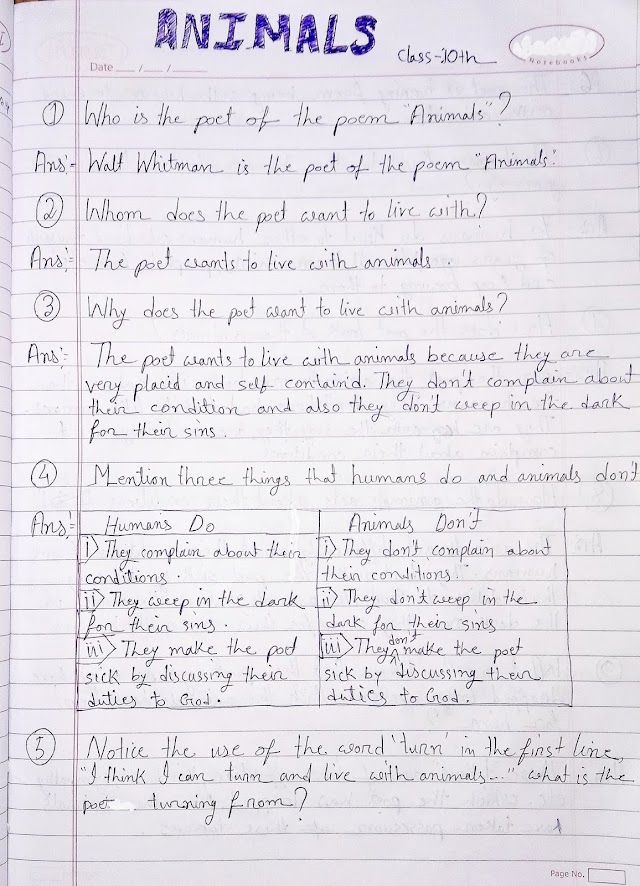 ANIMALS
Class-10th
Date __/__/__
Notebooks
① Who is the poet of the poem "Animals"?
Ans:- Walt Whitman is the poet of the poem "Animals."
② Whom does the poet want to live with?
Ans:- The poet wants to live with animals.
③ Why does the poet want to live with animals?
Ans:- The poet wants to live with animals because they are
very placid and self containid. They don't complain about
their condition and also they don't weep in the dark
for their sins.
④ Mention three things that humans do and animals don't
Ans:- Humans Do
i) They complain about their
conditions.
ii) They weep in the dark
for their sins.
iii) They make the poet
sick by discussing their
duties to God.
Animals Don't
i) They don't complain about
their conditions.
ii) They don't weep in the
dark for their sins
iii) They don't make the poet
sick by discussing their
duties to God.
⑤ Notice the use of the word 'turn' in the first line,
"I think I can turn and live with animals..." what is the
poet turning from?
Page No.